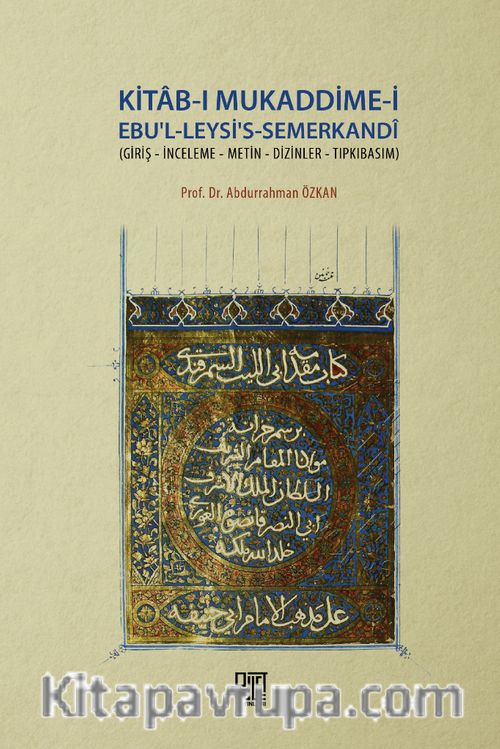 KİTÂB-I MUKADDİME-İ
EBU'L-LEYSİ'S-SEMERKANDÎ
(GİRİŞ - İNCELEME - METİN - DİZİNLER - TIPKIBASIM)
Prof. Dr. Abdurrahman ÖZKAN
كتاب مقدمة ابي الليث السمرقندي
برسم خزانة
مولانا المقام الشريف
السلطان الملك الاشرف
ابي النصر قانصوه الغوري
خلد الله ملكه
على مذهب الامام ابي حنيفة
Kitapavrupa.com